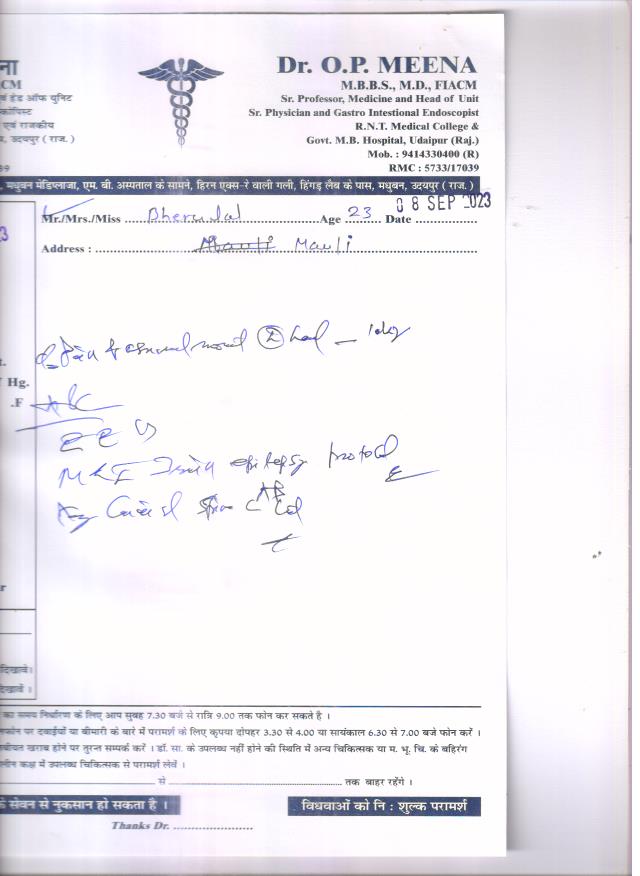 ना
Dr. O.P. MEENA
CM
M.B.B.S., M.D., FIACM
एवं हेड ऑफ यूनिट
Sr. Professor, Medicine and Head of Unit
Sr. Physician and Gastro Intestional Endoscopist
एवं राजकीय
R.N.T. Medical College &
उदयपुर ( राज. )
Govt. M.B. Hospital, Udaipur (Raj.)
Mob. : 9414330400 (R)
RMC : 5733/17039
मधुबन मेडिप्लाजा, एम. बी. अस्पताल के सामने, हिरन एक्स-रे वाली गली, हिंगड़ लैब के पास, मधुबन, उदयपुर ( राज. )
Mr./Mrs./Miss Age 23 Date 08 SEP 2023
Address : Mauli
Hg.
.F
EEG
MRI epilepsy protocol
दिखावें।
दिखावें ।
का समय निर्धारण के लिए आप सुबह 7.30 बजे से रात्रि 9.00 तक फोन कर सकते है ।
फोन पर दवाईयों या बीमारी के बारे में परामर्श के लिए कृपया दोपहर 3.30 से 4.00 या सायंकाल 6.30 से 7.00 बजे फोन करें ।
बीयत खराब होने पर तुरन्त सम्पर्क करें । डॉ. सा. के उपलब्ध नहीं होने की स्थिति में अन्य चिकित्सक या म. भू. चि. के बहिरंग
लीन कक्ष में उपलब्ध चिकित्सक से परामर्श लेवें ।
से तक बाहर रहेंगे ।
के सेवन से नुकसान हो सकता है ।
विधवाओं को नि : शुल्क परामर्श
Thanks Dr.